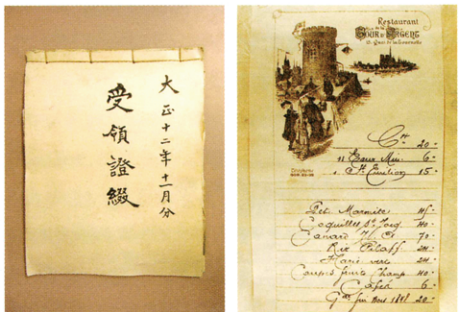 大正十二年十一月分
受領證綴
Restaurant
TOUR D'ARGENT
15. Quai de la Tournelle
Cts 20-
Eaux Min. 6-
St. Emilion 15-
Pet. Marmite
Coquilles St Jacq 40-
Canard 70-
Riz Pilaff 24-
Haric vert 24-
Coupes fruits Champ 40-
Café 6-
fin 20-